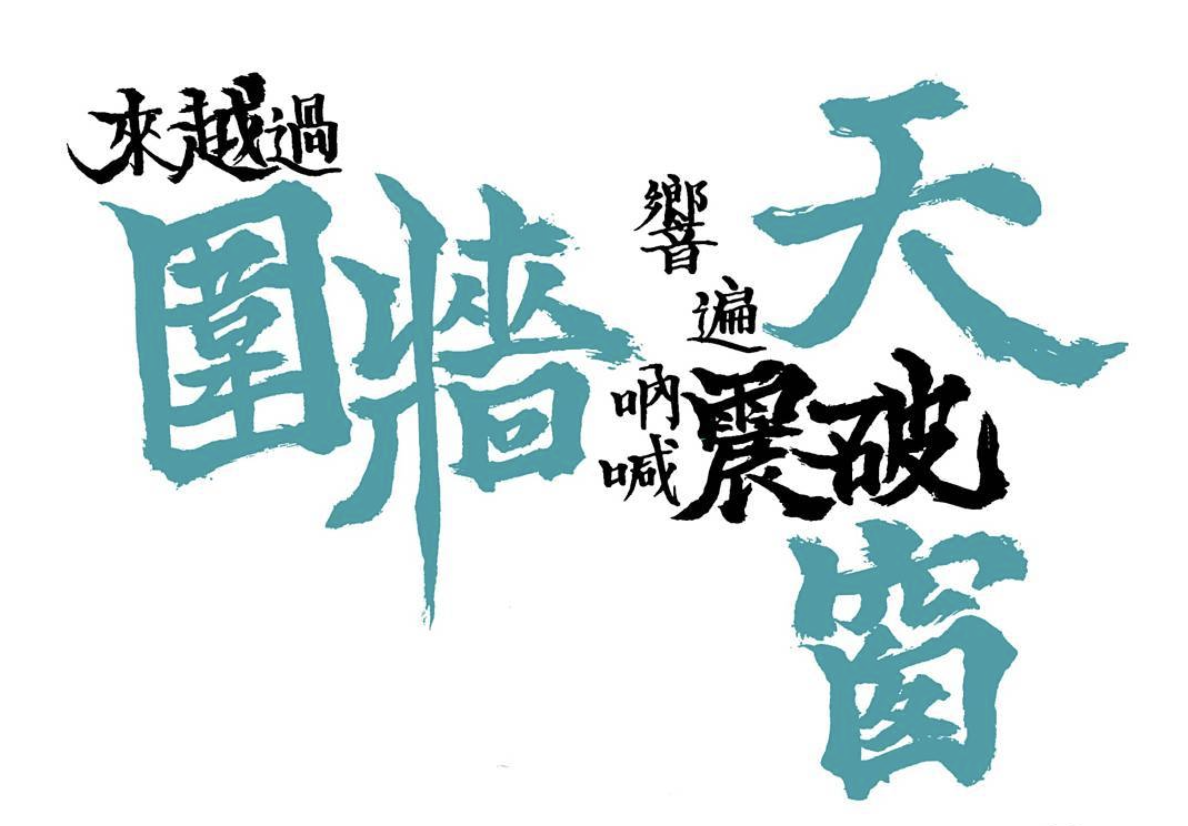 來越過
圍牆
響遍
天
吶喊
震破
窗